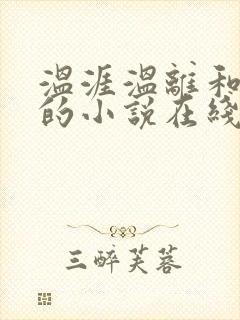 温涯温離和
的小説在綫
三醉芙蓉